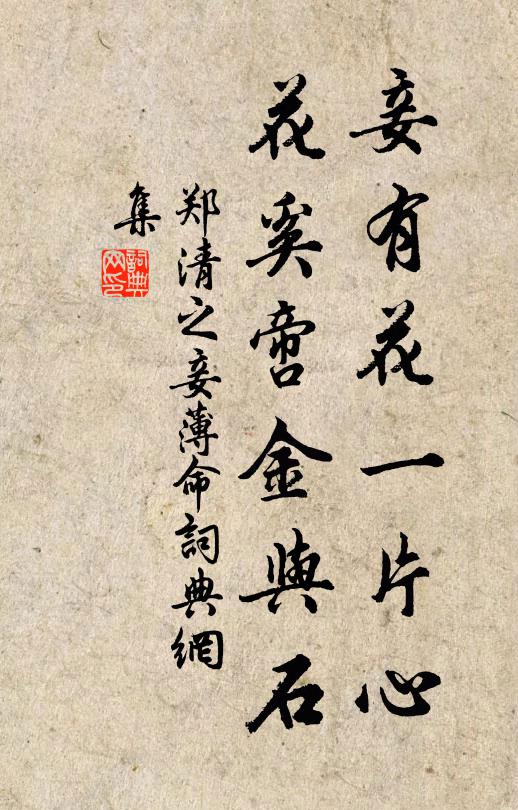 妾有花一片心
花奚啻金與石
郑清之妾薄命詞典網
集
詞典
网印